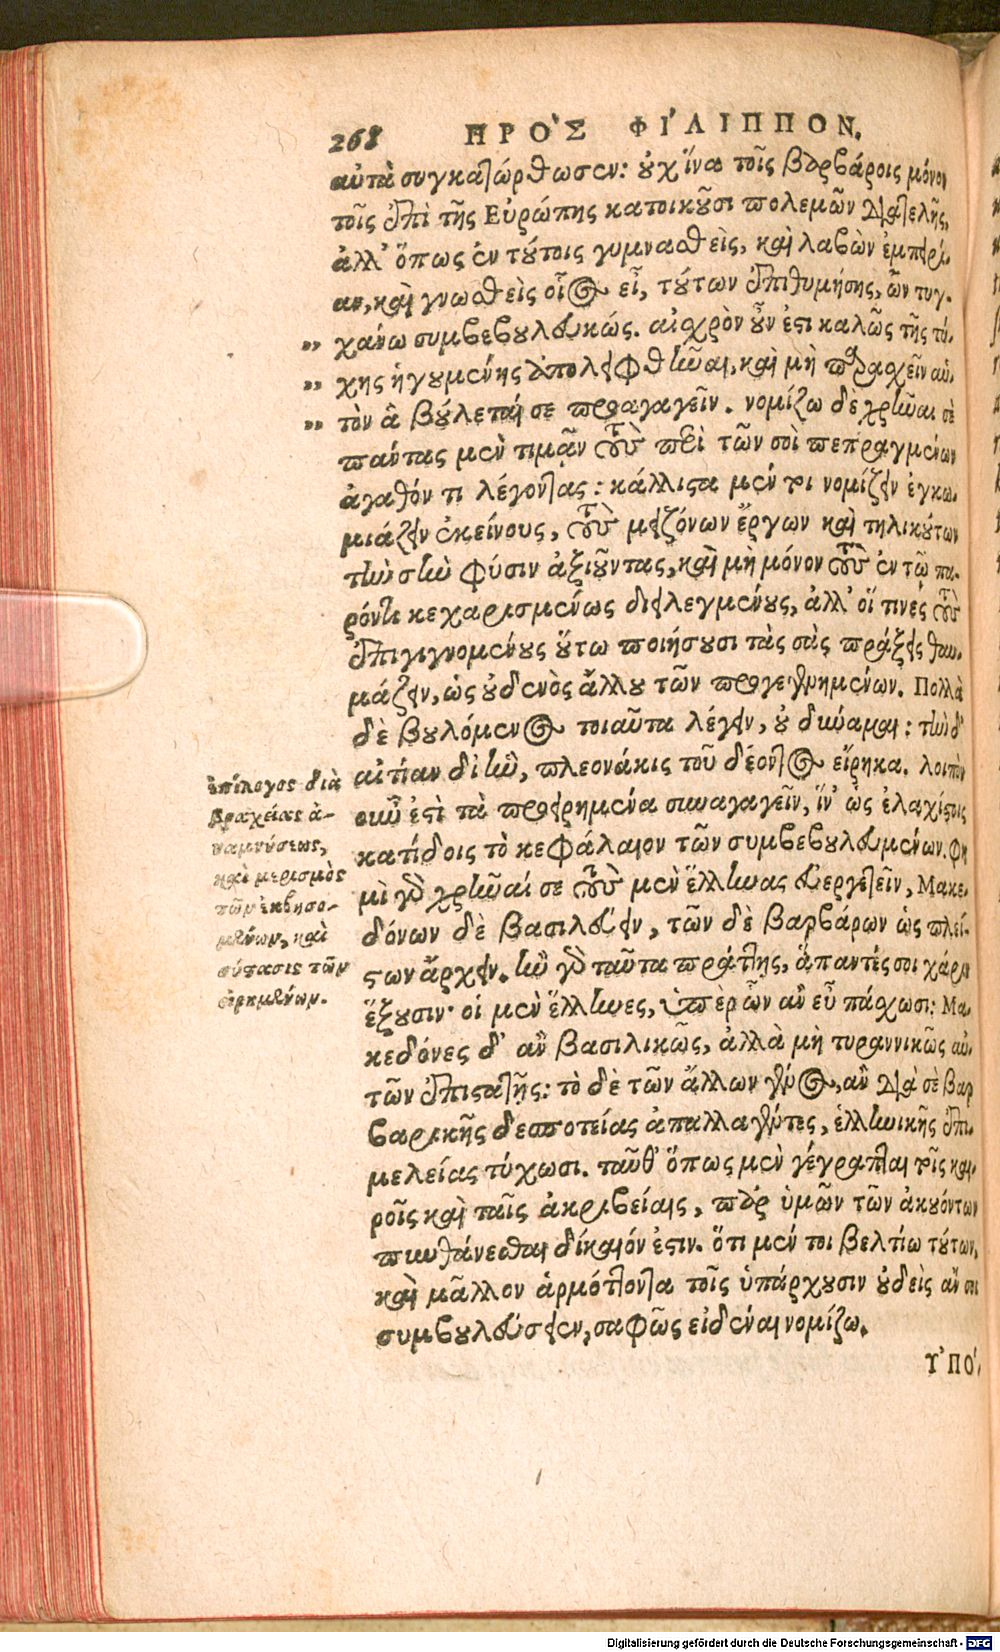 268 ΠΡΟ`Σ ΦΙ´ΛΙΠΠΟΝ.
αὐτὰ συγκατώρθωσεν: οὐχ ἵνα τοῖς βαρβάροις μόνον
τοῖς ἐπὶ τῆς Εὐρώπης κατοικοῦσι πολεμῶν διατελῇς,
ἀλλ' ὅπως ἐν τούτοις γυμνασθεὶς, καὶ λαβὼν ἐμπειρί-
αν, καὶ γνωσθεὶς οἷος εἶ, τούτων ἐπιθυμήσῃς, ὧν τυγ-
„ χάνω συμβεβουλευκώς. αἰσχρὸν οὖν ἐστι καλῶς τῆς τύ-
„ χης ἡγουμένης ἀπολειφθῆναι, καὶ μὴ παρασχεῖν αὑ-
„ τὸν ἃ βούλεταί σε προαγαγεῖν. νομίζω δὲ χρῆναι σὲ
πάντας μὲν τιμᾷν τοὺς περὶ τῶν σοὶ πεπραγμένων
ἀγαθόν τι λέγοντας: κάλλιστα μέν τοι νομίζειν ἐγκω-
μιάζειν ἐκείνους, τοὺς μειζόνων ἔργων καὶ τηλικούτων
τὴν σὴν φύσιν ἀξιοῦντας, καὶ μὴ μόνον τοὺς ἐν τῷ πα-
ρόντι κεχαρισμένως διειλεγμένους, ἀλλ' οἵ τινες τοὺς
ἐπιγιγνομένους οὕτω ποιήσουσι τὰς σὰς πράξεις θαυ-
μάζειν, ὡς οὐδενὸς ἄλλου τῶν προγεγενημένων. Πολλὰ
δὲ βουλόμενος τοιαῦτα λέγειν, οὐ δύναμαι: τὴν δ'
αἰτίαν δι' ἣν, πλεονάκις τοῦ δέοντος εἴρηκα. λοιπὸν
οὖν ἐστὶ τὰ προειρημένα συναγαγεῖν, ἵν' ὡς ἐλαχίστοις
κατίδοις τὸ κεφάλαιον τῶν συμβεβουλευμένων. φη
μὶ γὰρ χρῆναί σε τοὺς μὲν ἕλληνας εὐεργετεῖν, Μακε-
δόνων δὲ βασιλεύειν, τῶν δὲ βαρβάρων ὡς πλεί-
στων ἄρχειν. ἢν γὰρ ταῦτα πράττῃς, ἅπαντές σοι χάριν
ἕξουσιν· οἱ μὲν ἕλληνες, ὑπὲρ ὧν ἂν εὖ πάσχωσι: Μα-
κεδόνες δ' ἂν βασιλικῶς, ἀλλὰ μὴ τυραννικῶς αὐ-
τῶν ἐπιστατῇς: τὸ δὲ τῶν ἄλλων γένος, ἂν διὰ σὲ βαρ
βαρικῆς δεσποτείας ἀπαλλαγέντες, ἑλληνικῆς ἐπι-
μελείας τύχωσι. ταῦθ' ὅπως μὲν γέγραπται τοῖς και-
ροῖς καὶ ταῖς ἀκριβείαις, παρ' ὑμῶν τῶν ἀκουόντων
πυνθάνεσθαι δίκαιόν ἐστιν. ὅτι μέν τοι βελτίω τούτων,
καὶ μᾶλλον ἁρμόττοντα τοῖς ὑπάρχουσιν οὐδεὶς ἄν σοι
συμβουλεύσειεν, σαφῶς εἰδέναι νομίζω.
ΥʼΠΟ´-
ἐπίλογος διὰ
βραχείας ἀ-
ναμνήσεως,
καὶ μερισμὸς
τῶν ἐκβησο-
μένων, καὶ
σύστασις τῶν
εἰρημένων.
Digitalisierung gefördert durch die Deutsche Forschungsgemeinschaft - DFG